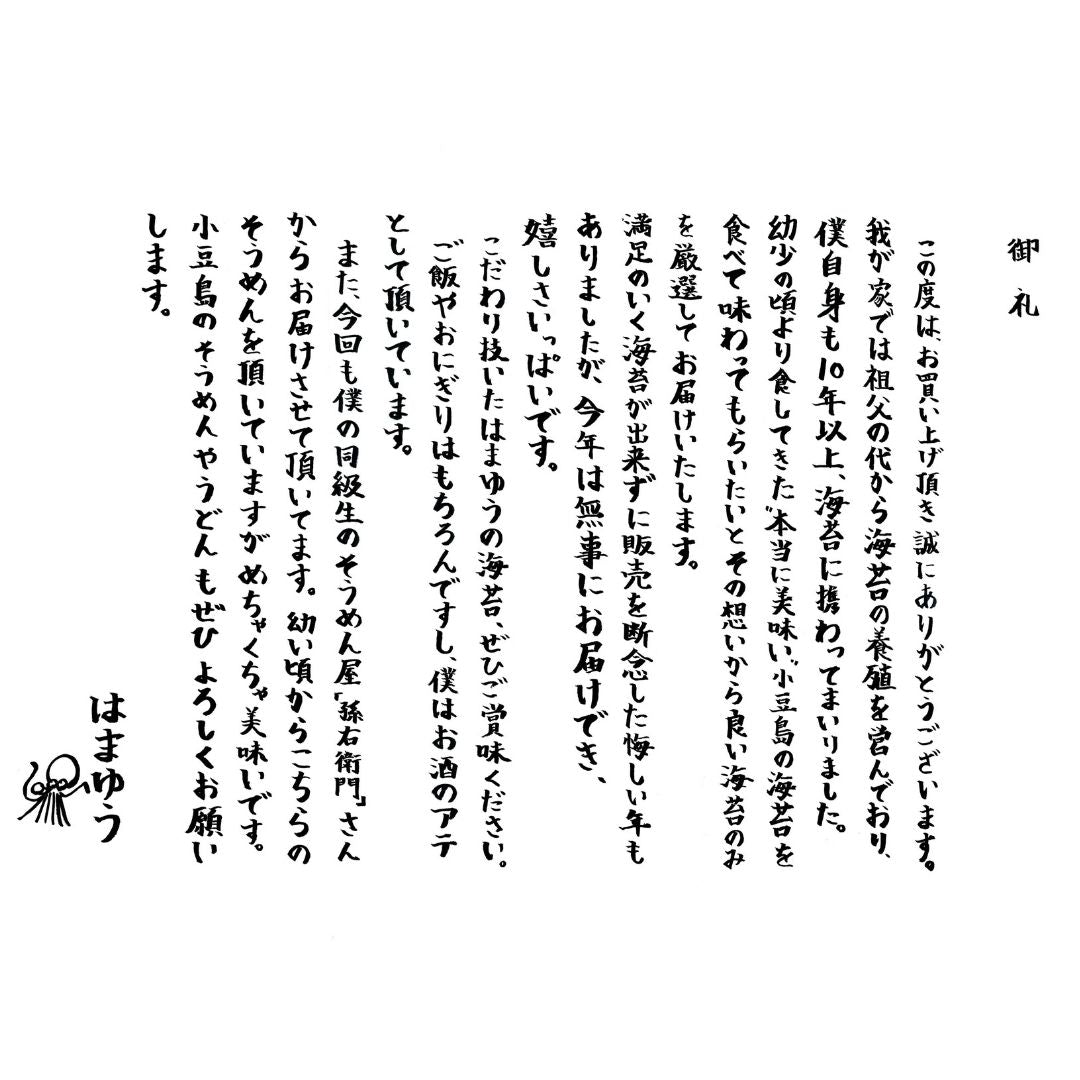 御礼
この度は、お買い上げ頂き誠にありがとうございます。
我が家では祖父の代から海苔の養殖を営んでおり、
僕自身も10年以上、海苔に携わってまいりました。
幼少の頃より食してきた"本当に美味い"小豆島の海苔を
食べて味わってもらいたいとその想いから良い海苔のみ
を厳選してお届けいたします。
満足のいく海苔が出来ずに販売を断念した悔しい年も
ありましたが、今年は無事にお届けでき、
嬉しさいっぱいです。
こだわり技いたはまゆうの海苔、ぜひご賞味ください。
ご飯やおにぎりはもちろんですし、僕はお酒のアテ
として頂いています。
また、今回も僕の同級生のそうめん屋「孫右衛門」さん
からお届けさせて頂いてます。幼い頃からこちらの
そうめんを頂いていますがめちゃくちゃ美味いです。
小豆島のそうめんやうどんもぜひよろしくお願い
します。
はまゆう